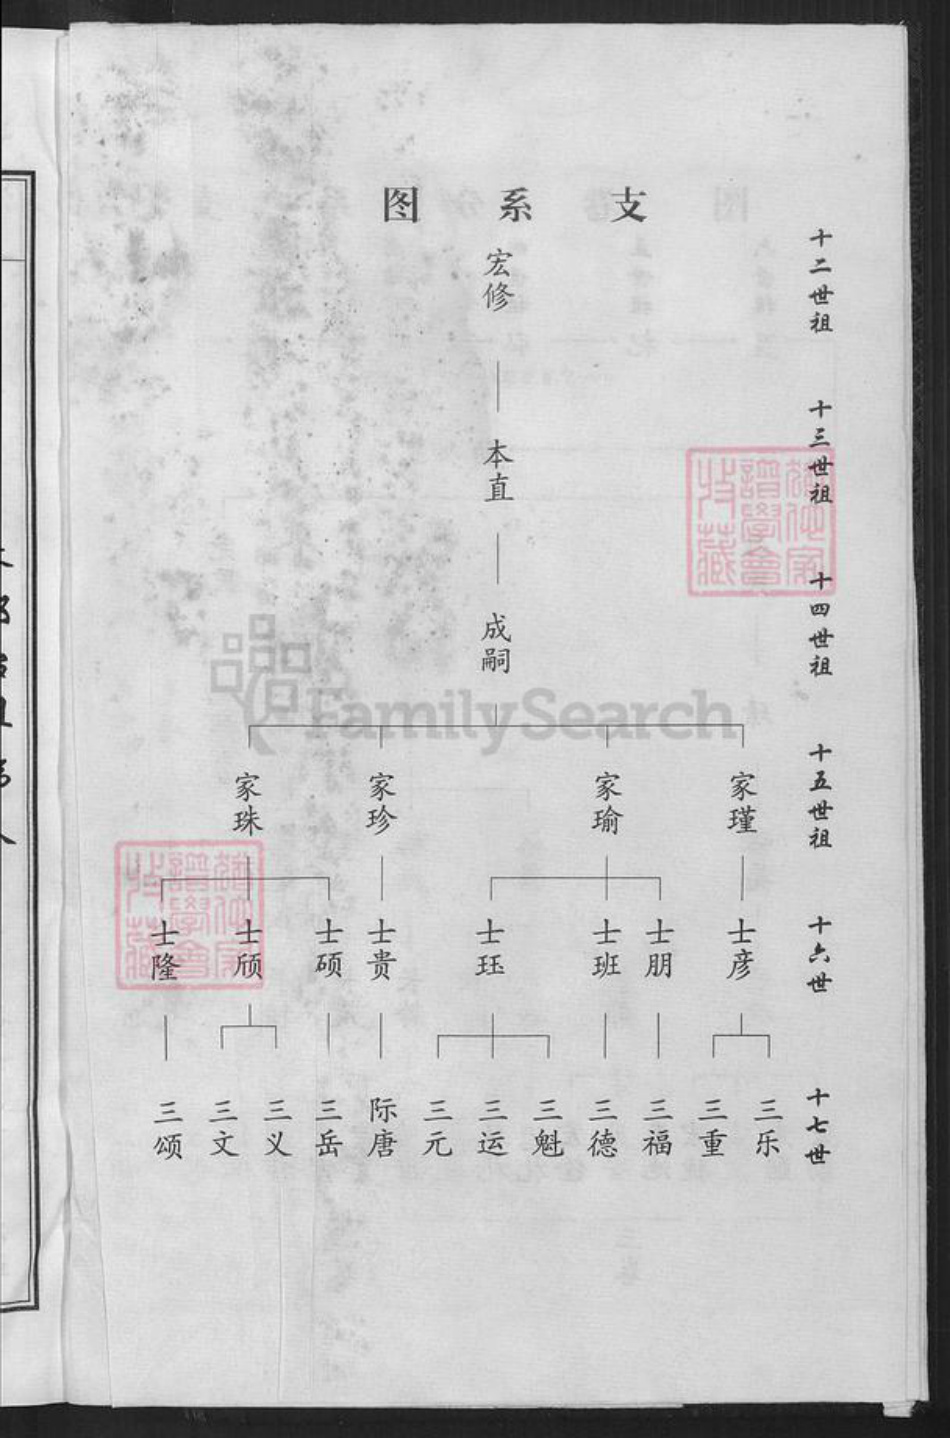 支系图
十二世祖
宏修
十三世祖
本直
十四世祖
成嗣
十五世祖
家瑾
家瑜
家珍
家珠
十六世
士彦
士朋
士班
士珏
士贵
士硕
士颀
士隆
十七世
三乐
三重
三福
三德
三魁
三运
三元
际唐
三岳
三义
三文
三颂
FamilySearch